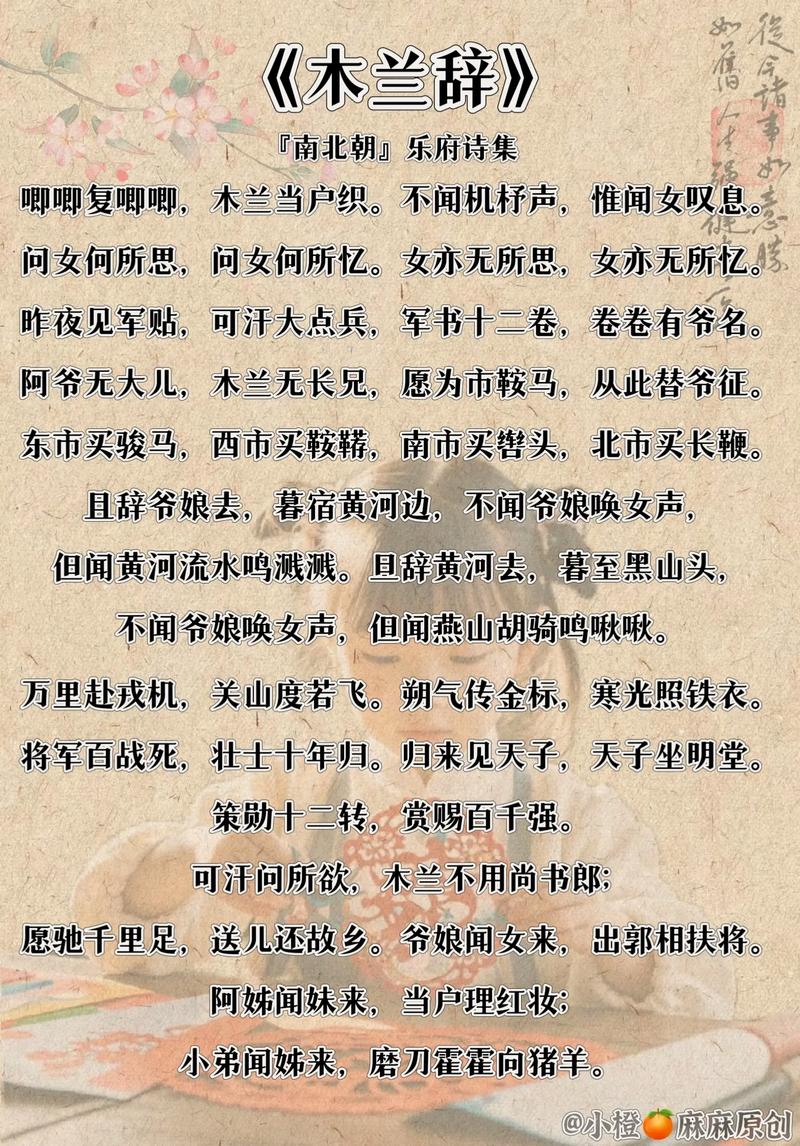 《木兰辞》
『南北朝』乐府诗集
唧唧复唧唧，木兰当户织。不闻机杼声，惟闻女叹息。
问女何所思，问女何所忆。女亦无所思，女亦无所忆。
昨夜见军贴，可汗大点兵，军书十二卷，卷卷有爷名。
阿爷无大儿，木兰无长兄，愿为市鞍马，从此替爷征。
东市买骏马，西市买鞍鞯，南市买辔头，北市买长鞭。
且辞爷娘去，暮宿黄河边，不闻爷娘唤女声，
但闻黄河流水鸣溅溅。旦辞黄河去，暮至黑山头，
不闻爷娘唤女声，但闻燕山胡骑鸣啾啾。
万里赴戎机，关山度若飞。朔气传金标，寒光照铁衣。
将军百战死，壮士十年归。归来见天子，天子坐明堂。
策勋十二转，赏赐百千强。
可汗问所欲，木兰不用尚书郎；
愿驰千里足，送儿还故乡。爷娘闻女来，出郭相扶将。
阿姊闻妹来，当户理红妆；
小弟闻姊来，磨刀霍霍向猪羊。
從今諸事如意勝
如舊人生
@小橙🍊麻麻原创